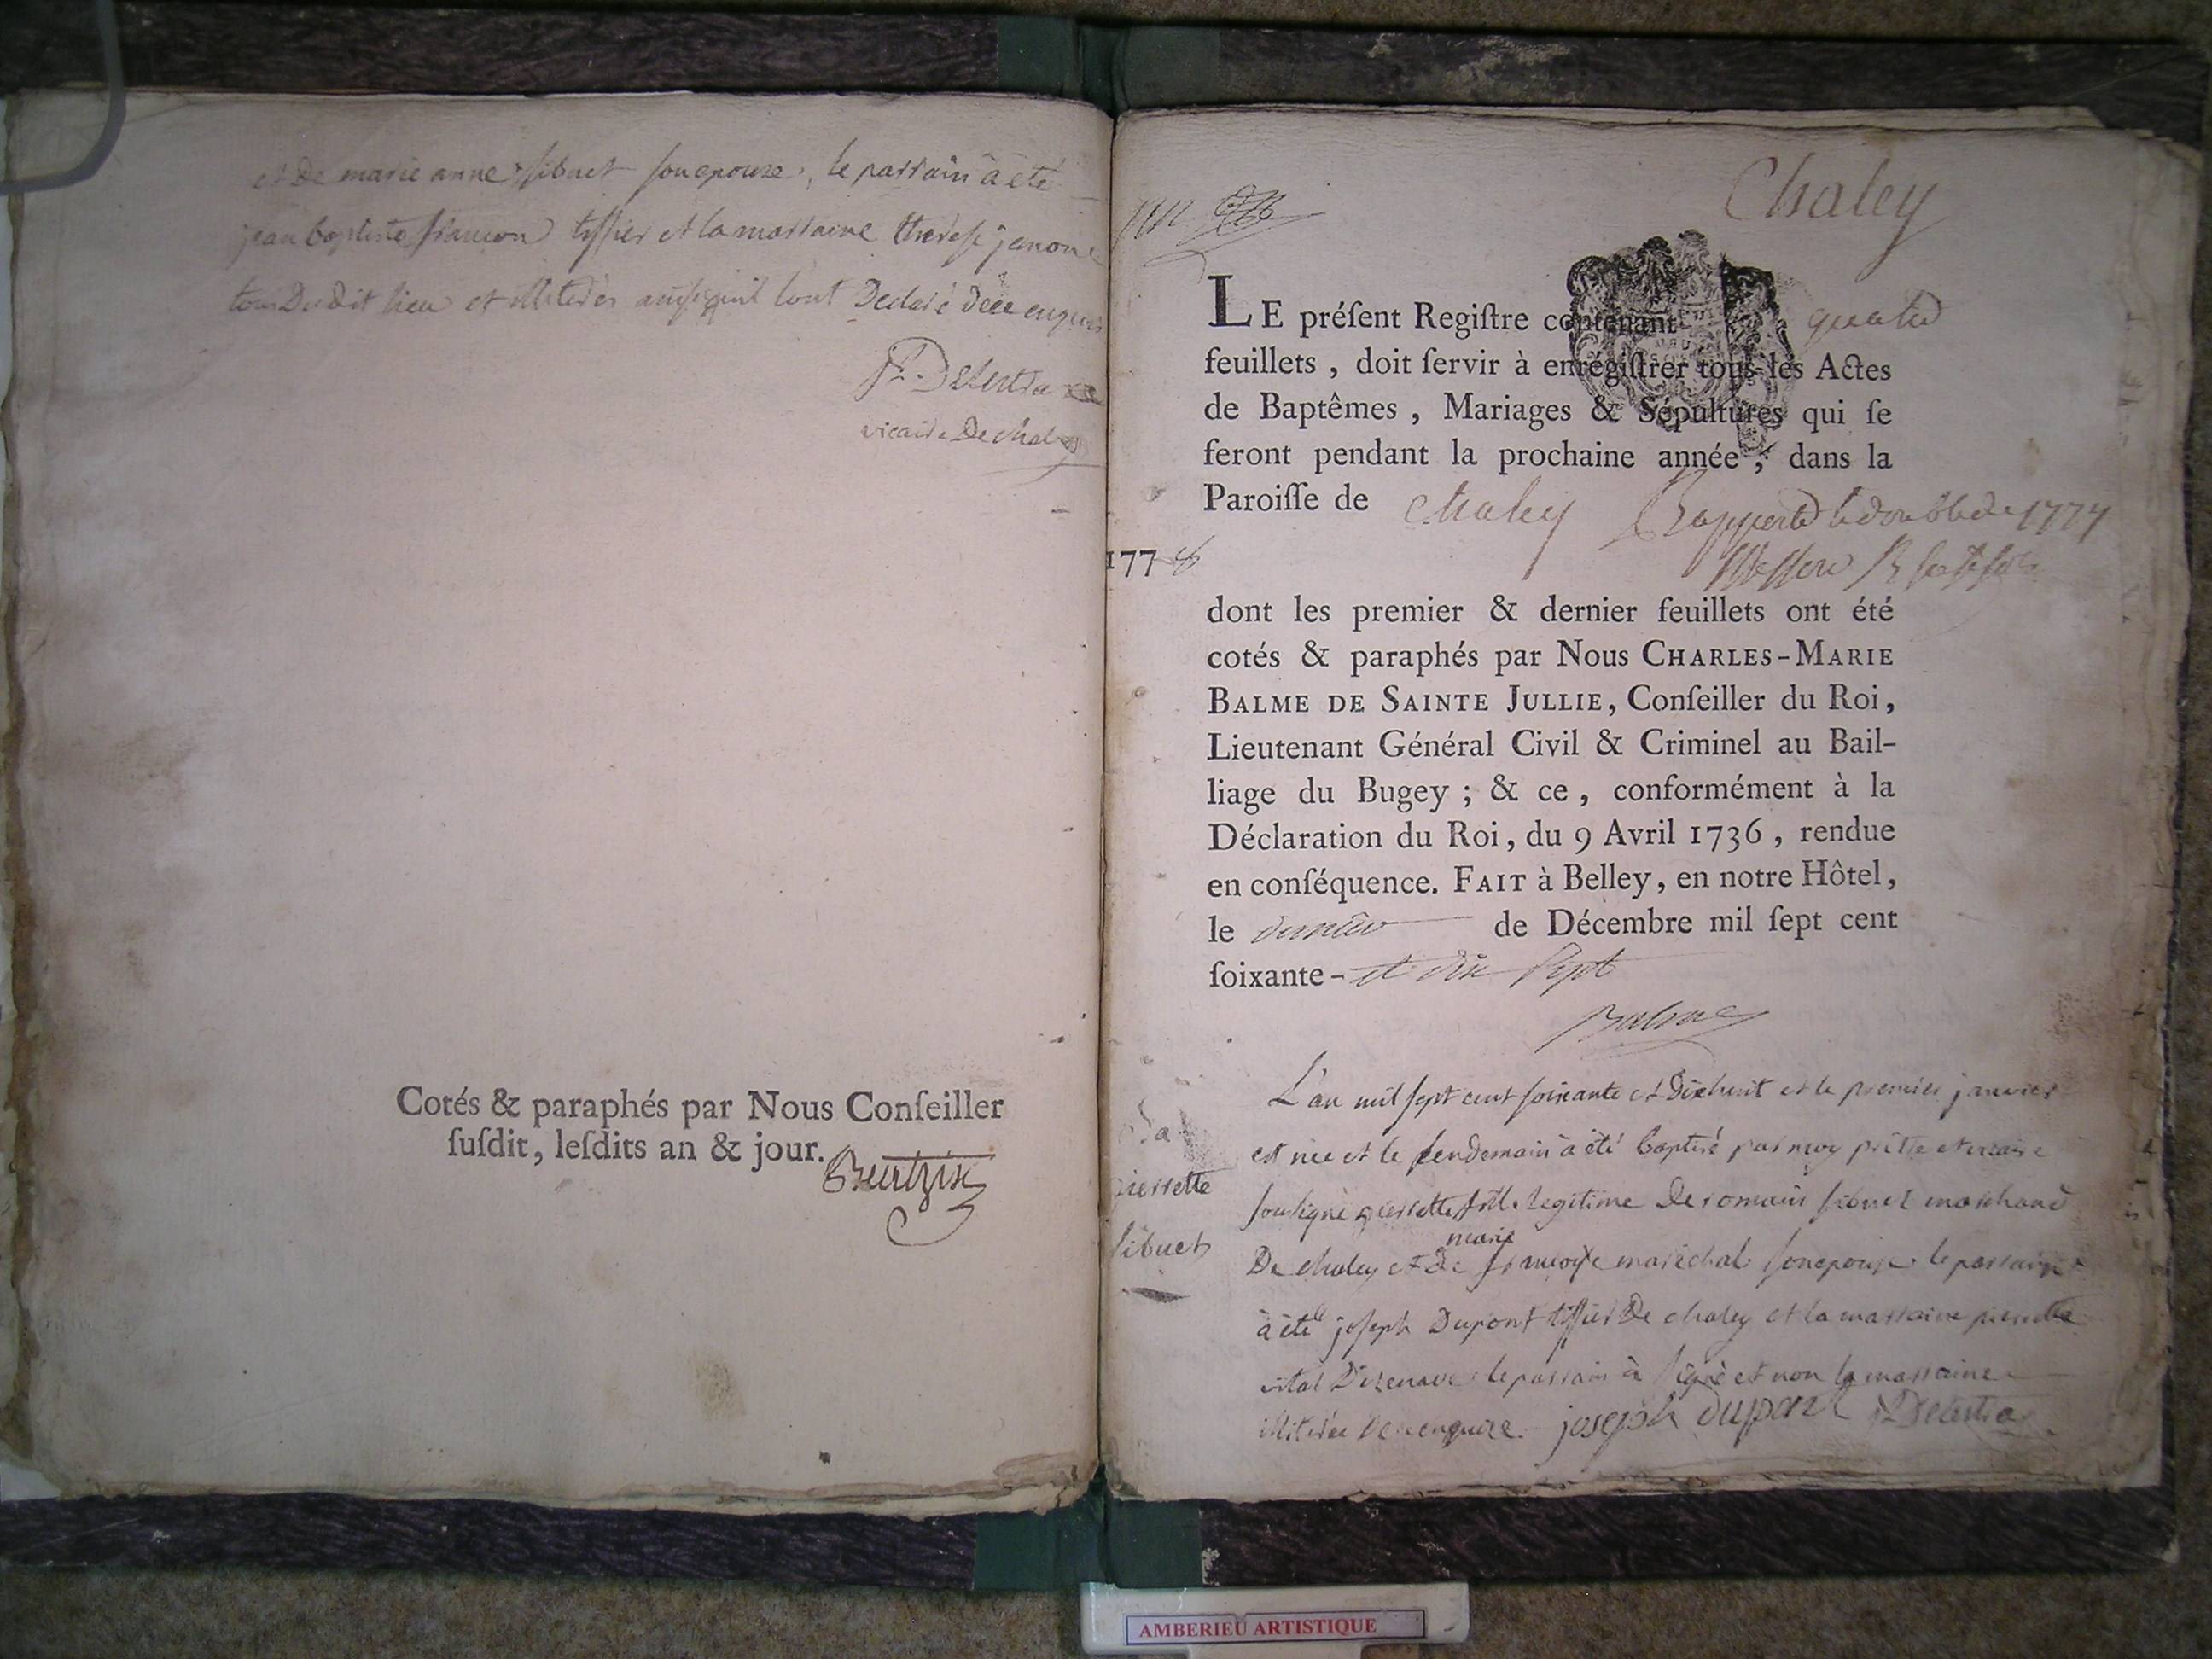 et de marie anne sibuet son epouze, le parrain à été
jean baptiste françon tissier et la marraine therese janon
tous du dit lieu et illiterés ainsi qu'il l'ont declaré de ce enquis
Delestra
vicaire de chaley
Cotés & paraphés par Nous Conſeiller
ſuſdit, leſdits an & jour.
Chaley
LE préſent Regiſtre contenant quatre
feuillets, doit ſervir à enrégiſtrer tous les Actes
de Baptêmes, Mariages & Sépultures qui ſe
feront pendant la prochaine année, dans la
Paroiſſe de chaley Rapporté le double de 1777
1778
dont les premier & dernier feuillets ont été
cotés & paraphés par Nous CHARLES-MARIE
BALME DE SAINTE JULLIE, Conſeiller du Roi,
Lieutenant Général Civil & Criminel au Bail-
liage du Bugey ; & ce, conformément à la
Déclaration du Roi, du 9 Avril 1736, rendue
en conſéquence. FAIT à Belley, en notre Hôtel,
le dernier de Décembre mil ſept cent
ſoixante-et dix sept
Balme
pierrette
sibuet
L'an mil sept cent soixante et dix huit et le premier janvier
est nee et le lendemain à été baptisé par moy prêtre et vicaire
soussigné pierrette fille legitime de romain sibuet marchand
marie
De chaley et de françoise maréchal son epouse le parrain
à été joseph Dupont tissier de chaley et la marraine pierrette
vital le parrain à signé et non la marraine
illiterée de ce enquize. joseph dupont Delestra
AMBERIEU ARTISTIQUE